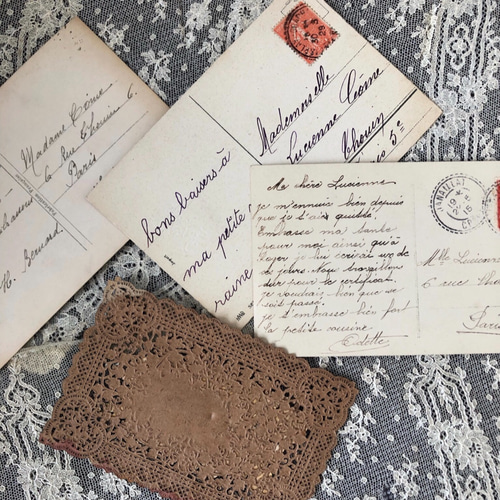 Madame Come
6 Rue Thouin 6.
Paris
H. Bernard
Mademoiselle
Lucienne Come
Thouin
Paris 5e
bons baisers à
ma petite
raine
Ma chère Lucienne
je m'ennuie bien depuis
que je t'ai quitté.
Embrasse ma tante
pour moi ainsi qu'à
je lui écrirai un de
ces jours. Nous travaillons
dur pour le certificat.
je voudrais bien que ce
soit passé.
je t'embrasse bien fort
ta petite cousine
Odette
19
15
Mlle Lucienne
6 rue Tho
Par